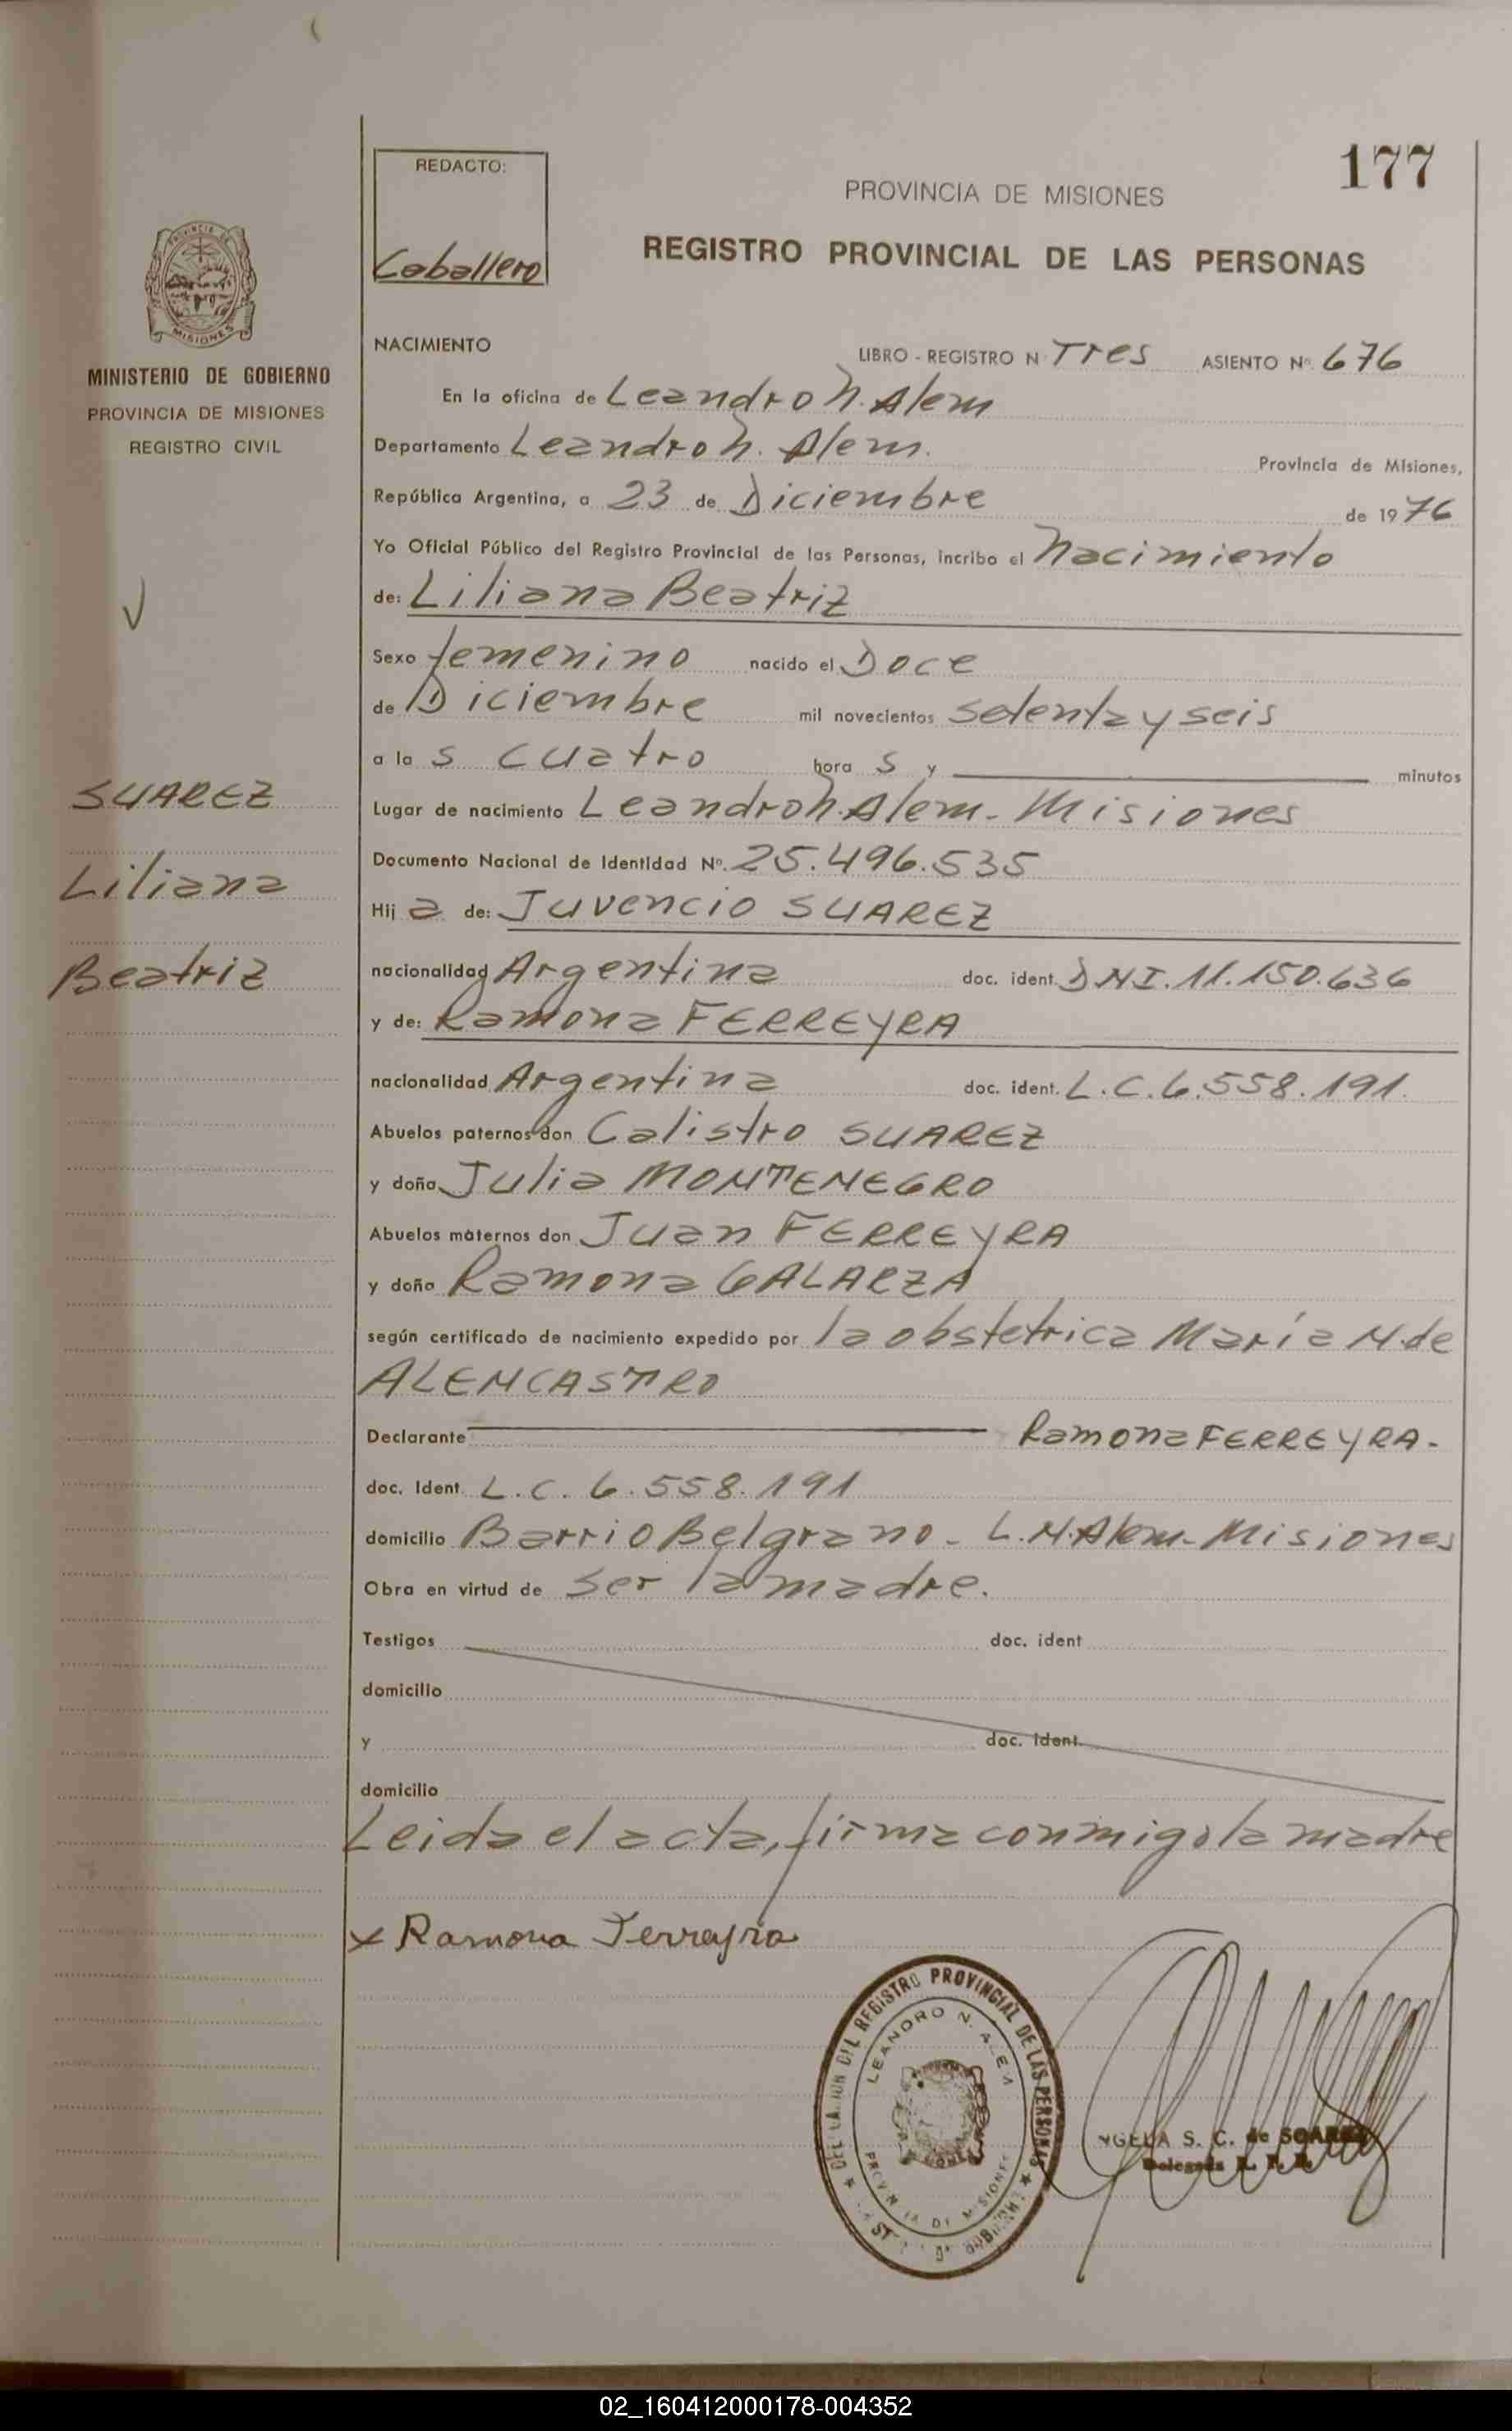 177
REDACTO:
Caballero
PROVINCIA DE MISIONES
REGISTRO PROVINCIAL DE LAS PERSONAS
MISIONES
MINISTERIO DE GOBIERNO
PROVINCIA DE MISIONES
REGISTRO CIVIL
SUAREZ
Liliana
Beatriz
NACIMIENTO LIBRO - REGISTRO N Tres ASIENTO Nº 676
En la oficina de Leandro N. Alem
Departamento Leandro N. Alem. Provincia de Misiones,
República Argentina, a 23 de Diciembre de 1976
Yo Oficial Público del Registro Provincial de las Personas, incribo el Nacimiento
de: Liliana Beatriz
Sexo femenino nacido el Doce
de Diciembre mil novecientos setenta y seis
a la s cuatro hora s y minutos
Lugar de nacimiento Leandro N. Alem - Misiones
Documento Nacional de Identidad Nº. 25.496.535
Hij a de: Juvencio SUAREZ
nacionalidad Argentina doc. ident. DNI. 11.150.636
y de: Ramona FERREYRA
nacionalidad Argentina doc. ident. L.C. 6.558.191.
Abuelos paternos don Calistro SUAREZ
y doña Julia MONTENEGRO
Abuelos maternos don Juan FERREYRA
y doña Ramona GALARZA
según certificado de nacimiento expedido por la obstetrica María N. de
ALENCASTRO
Declarante Ramona FERREYRA.
doc. Ident. L.C. 6.558.191
domicilio Barrio Belgrano - L.N.Alem - Misiones
Obra en virtud de ser la madre.
Testigos doc. ident
domicilio
y doc. ident.
domicilio
Leida el acta, firma conmigo la madre
x Ramona Ferreyra
REGISTRO PROVINCIAL DE LAS PERSONAS
LEANDRO N. ALEM
PROVINCIA DE MISIONES
S. C. de
02_160412000178-004352